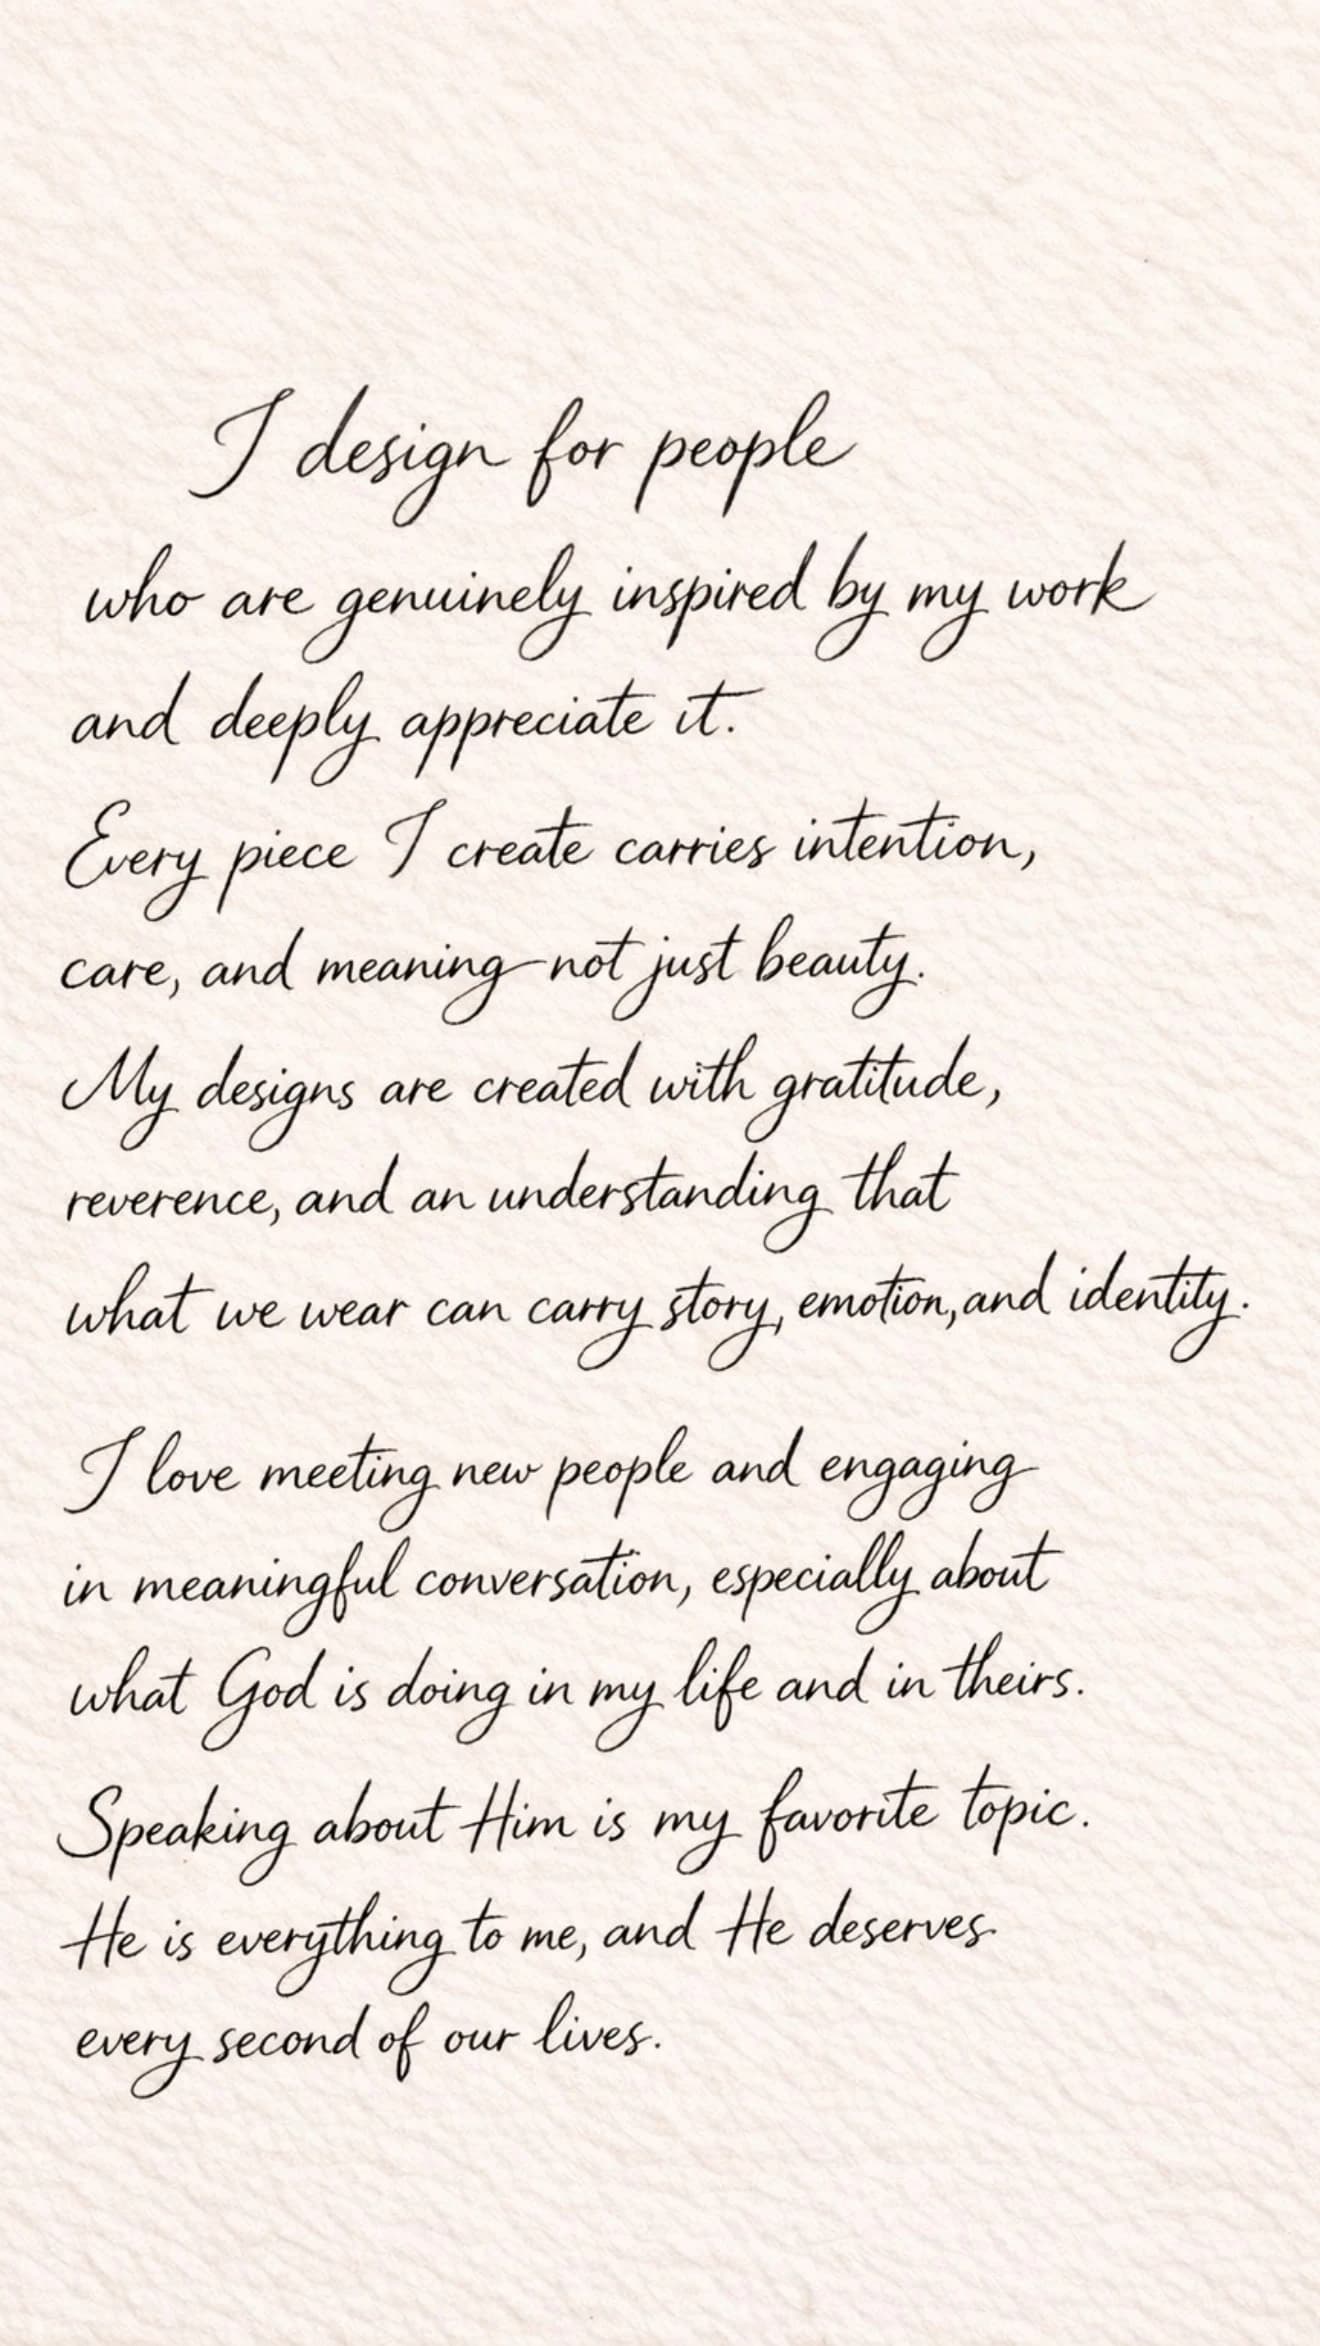 I design for people
who are genuinely inspired by my work
and deeply appreciate it.
Every piece I create carries intention,
care, and meaning—not just beauty.
My designs are created with gratitude,
reverence, and an understanding that
what we wear can carry story, emotion, and identity.
I love meeting new people and engaging
in meaningful conversation, especially about
what God is doing in my life and in theirs.
Speaking about Him is my favorite topic.
He is everything to me, and He deserves
every second of our lives.